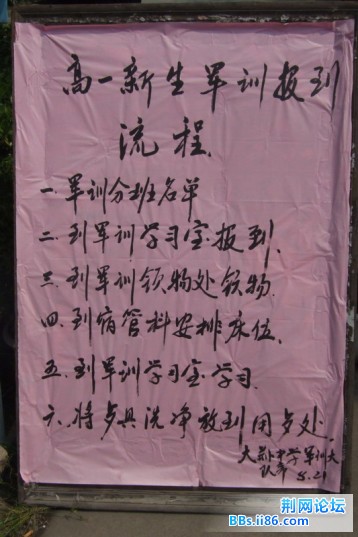 高一新生军训报到
流程
一.军训分班名单
二.到军训学习室报到.
三.到军训领物处领物.
四.到宿管科安排床位.
五.到军训学习室学习.
六.将卧具洗净放到用处.
中学军训大
8.21
荆网论坛
BBs.ii86.com